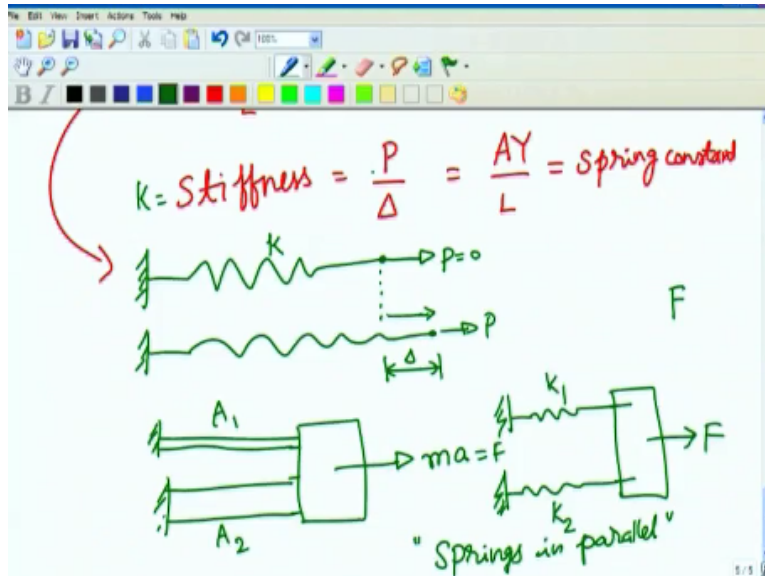 File Edit View Insert Actions Tools Help
100%
B I
K = Stiffness = P/Δ = AY/L = Spring constant
K
P=0
P
Δ
F
A₁
ma=F
A₂
K₁
F
K₂
"Springs in parallel"
5/5